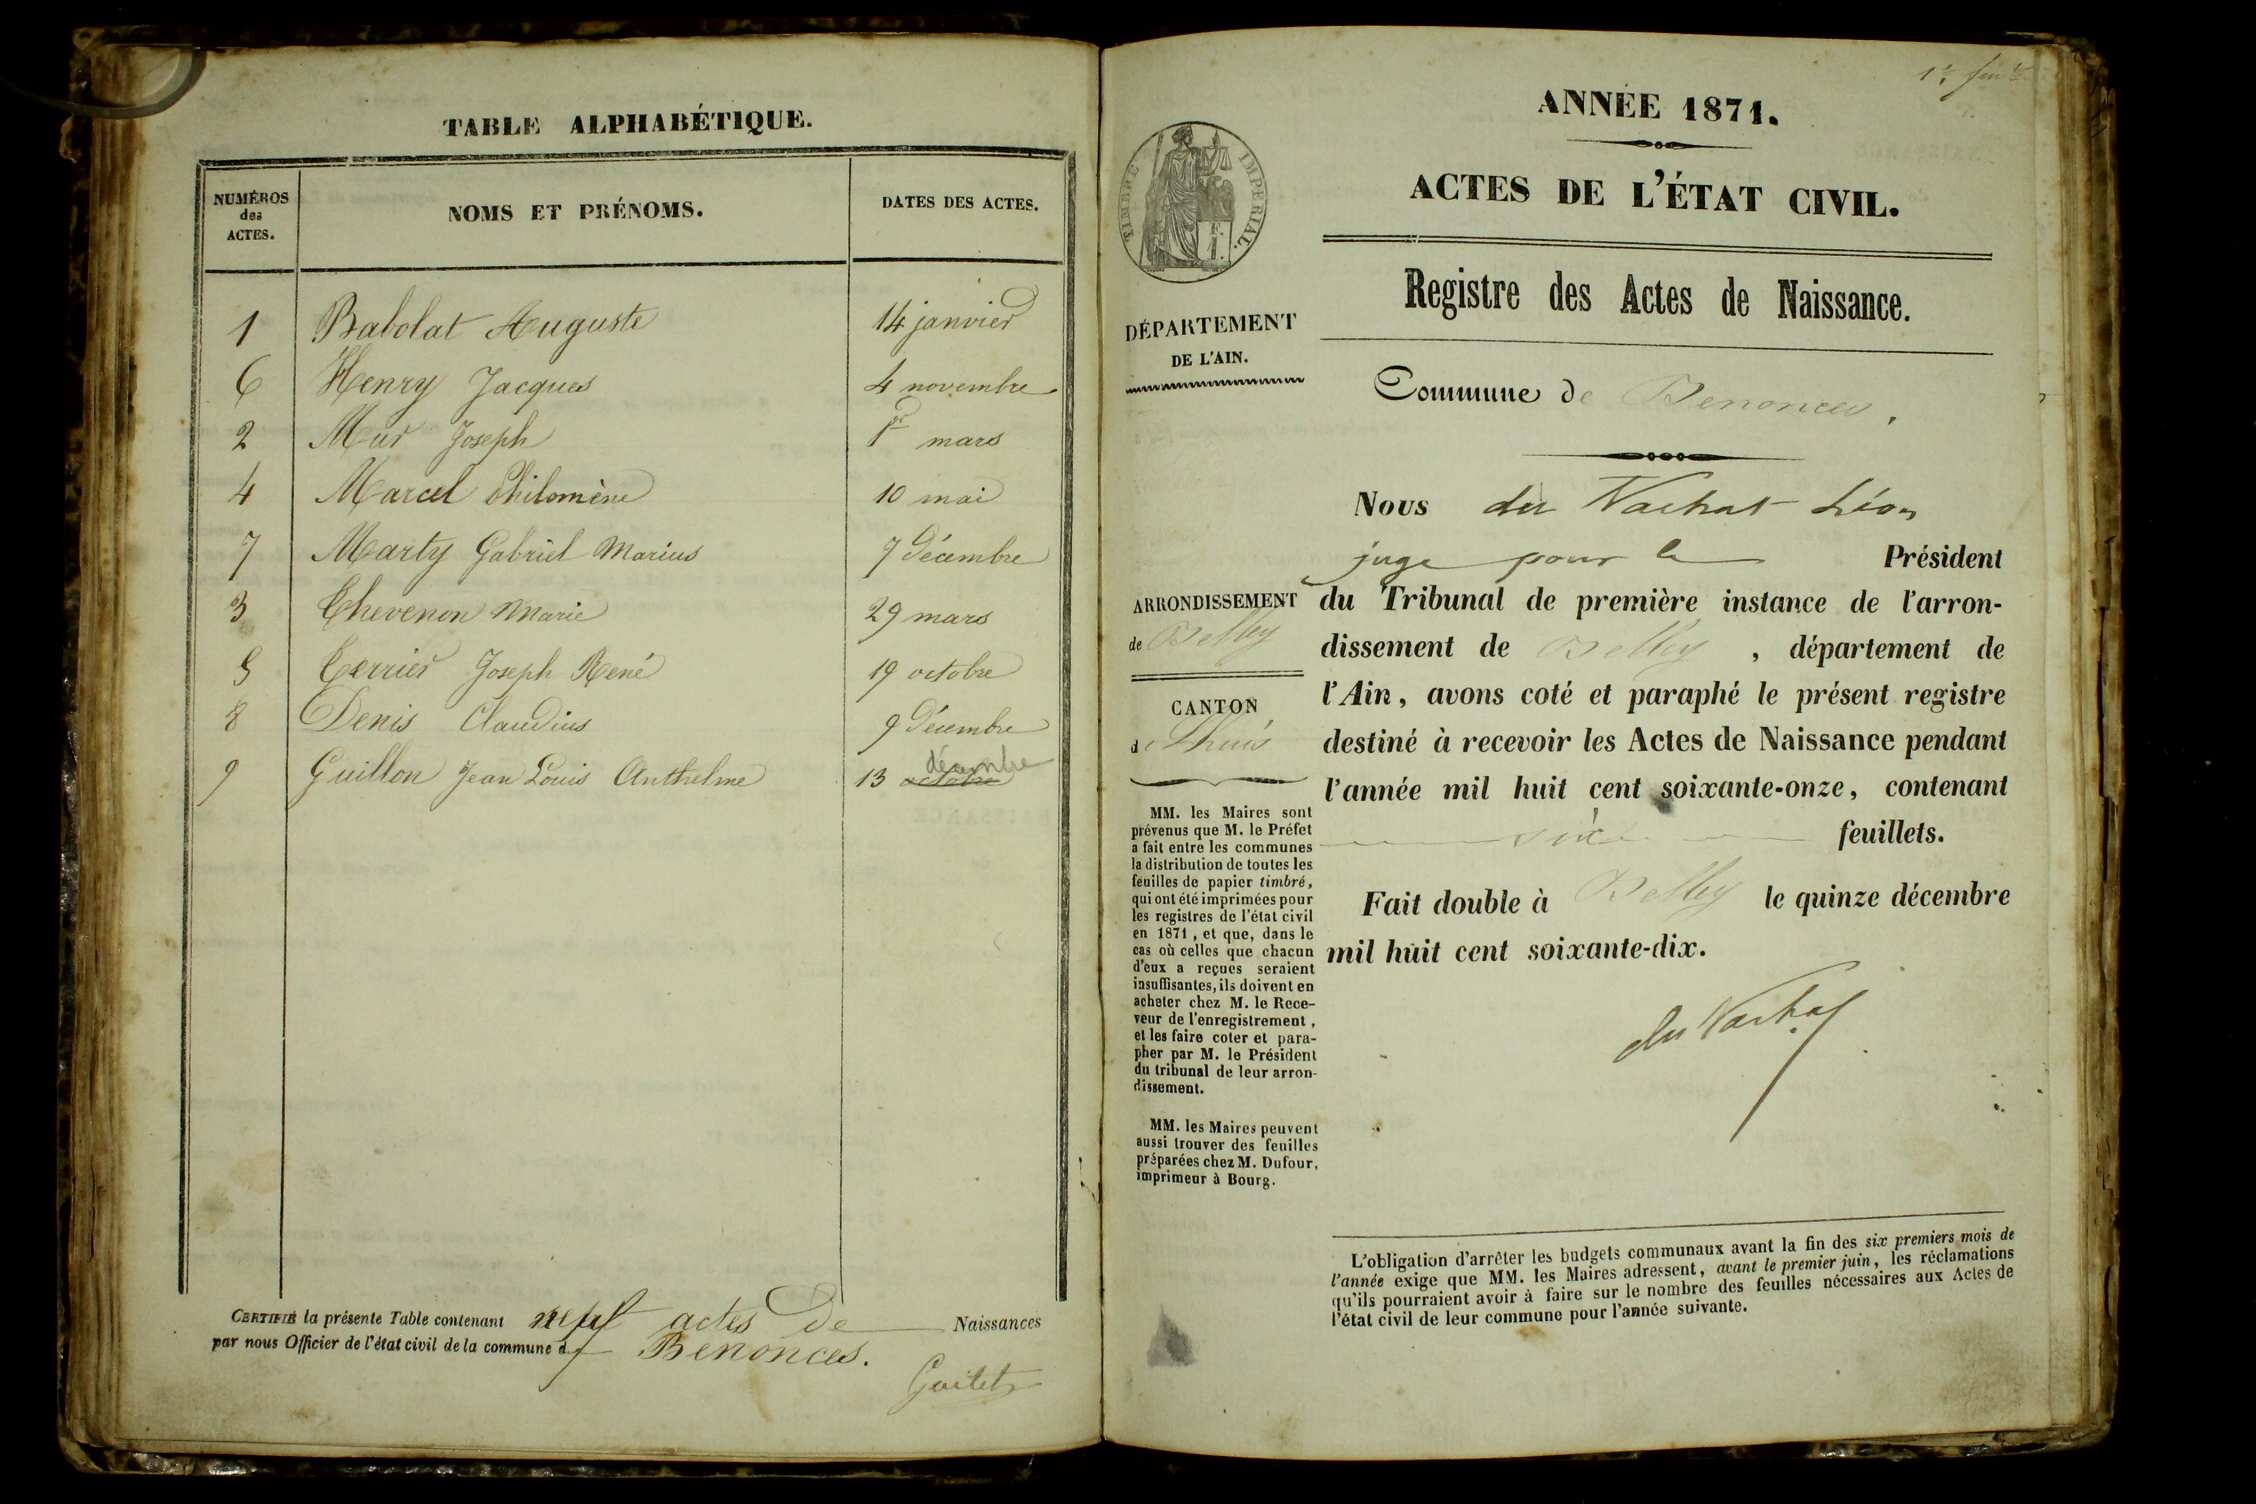 TABLE ALPHABÉTIQUE.
NUMÉROS
des
ACTES.
NOMS ET PRÉNOMS.
DATES DES ACTES.
1 Babolat Auguste 14 janvier
6 Henry Jacques 4 novembre
2 Mur Joseph 1er mars
4 Marcel Philomène 10 mai
7 Marty Gabriel Marius 7 Décembre
3 Chevenon Marie 29 mars
5 Joseph René 19 octobre
8 Denis Claudius 9 Décembre
décembre
9 Guillon Jean Louis Anthelme 13 octobre
CERTIFIÉ la présente Table contenant neuf actes De Naissances
par nous Officier de l'état civil de la commune d Benonces.
1er feuet
ANNÉE 1871.
ACTES DE L'ÉTAT CIVIL.
Registre des Actes de Naissance.
TIMBRE IMPERIAL.
1 F.
DÉPARTEMENT
DE L'AIN.
Commune de Benonces.
Nous du Vachat Léon
juge pour le Président
du Tribunal de première instance de l'arron-
dissement de Belley, département de
l'Ain, avons coté et paraphé le présent registre
destiné à recevoir les Actes de Naissance pendant
l'année mil huit cent soixante-onze, contenant
six feuillets.
Fait double à Belley le quinze décembre
mil huit cent soixante-dix.
du Vachat
ARRONDISSEMENT
de Belley
CANTON
de Lhuis
MM. les Maires sont
prévenus que M. le Préfet
a fait entre les communes
la distribution de toutes les
feuilles de papier timbré,
qui ont été imprimées pour
les registres de l'état civil
en 1871, et que, dans le
cas où celles que chacun
d'eux a reçues seraient
insuffisantes, ils doivent en
acheter chez M. le Rece-
veur de l'enregistrement,
et les faire coter et para-
pher par M. le Président
du tribunal de leur arron-
dissement.
MM. les Maires peuvent
aussi trouver des feuilles
préparées chez M. Dufour,
imprimeur à Bourg.
L'obligation d'arrêter les budgets communaux avant la fin des six premiers mois de
l'année exige que MM. les Maires adressent, avant le premier juin, les réclamations
qu'ils pourraient avoir à faire sur le nombre des feuilles nécessaires aux Actes de
l'état civil de leur commune pour l'année suivante.